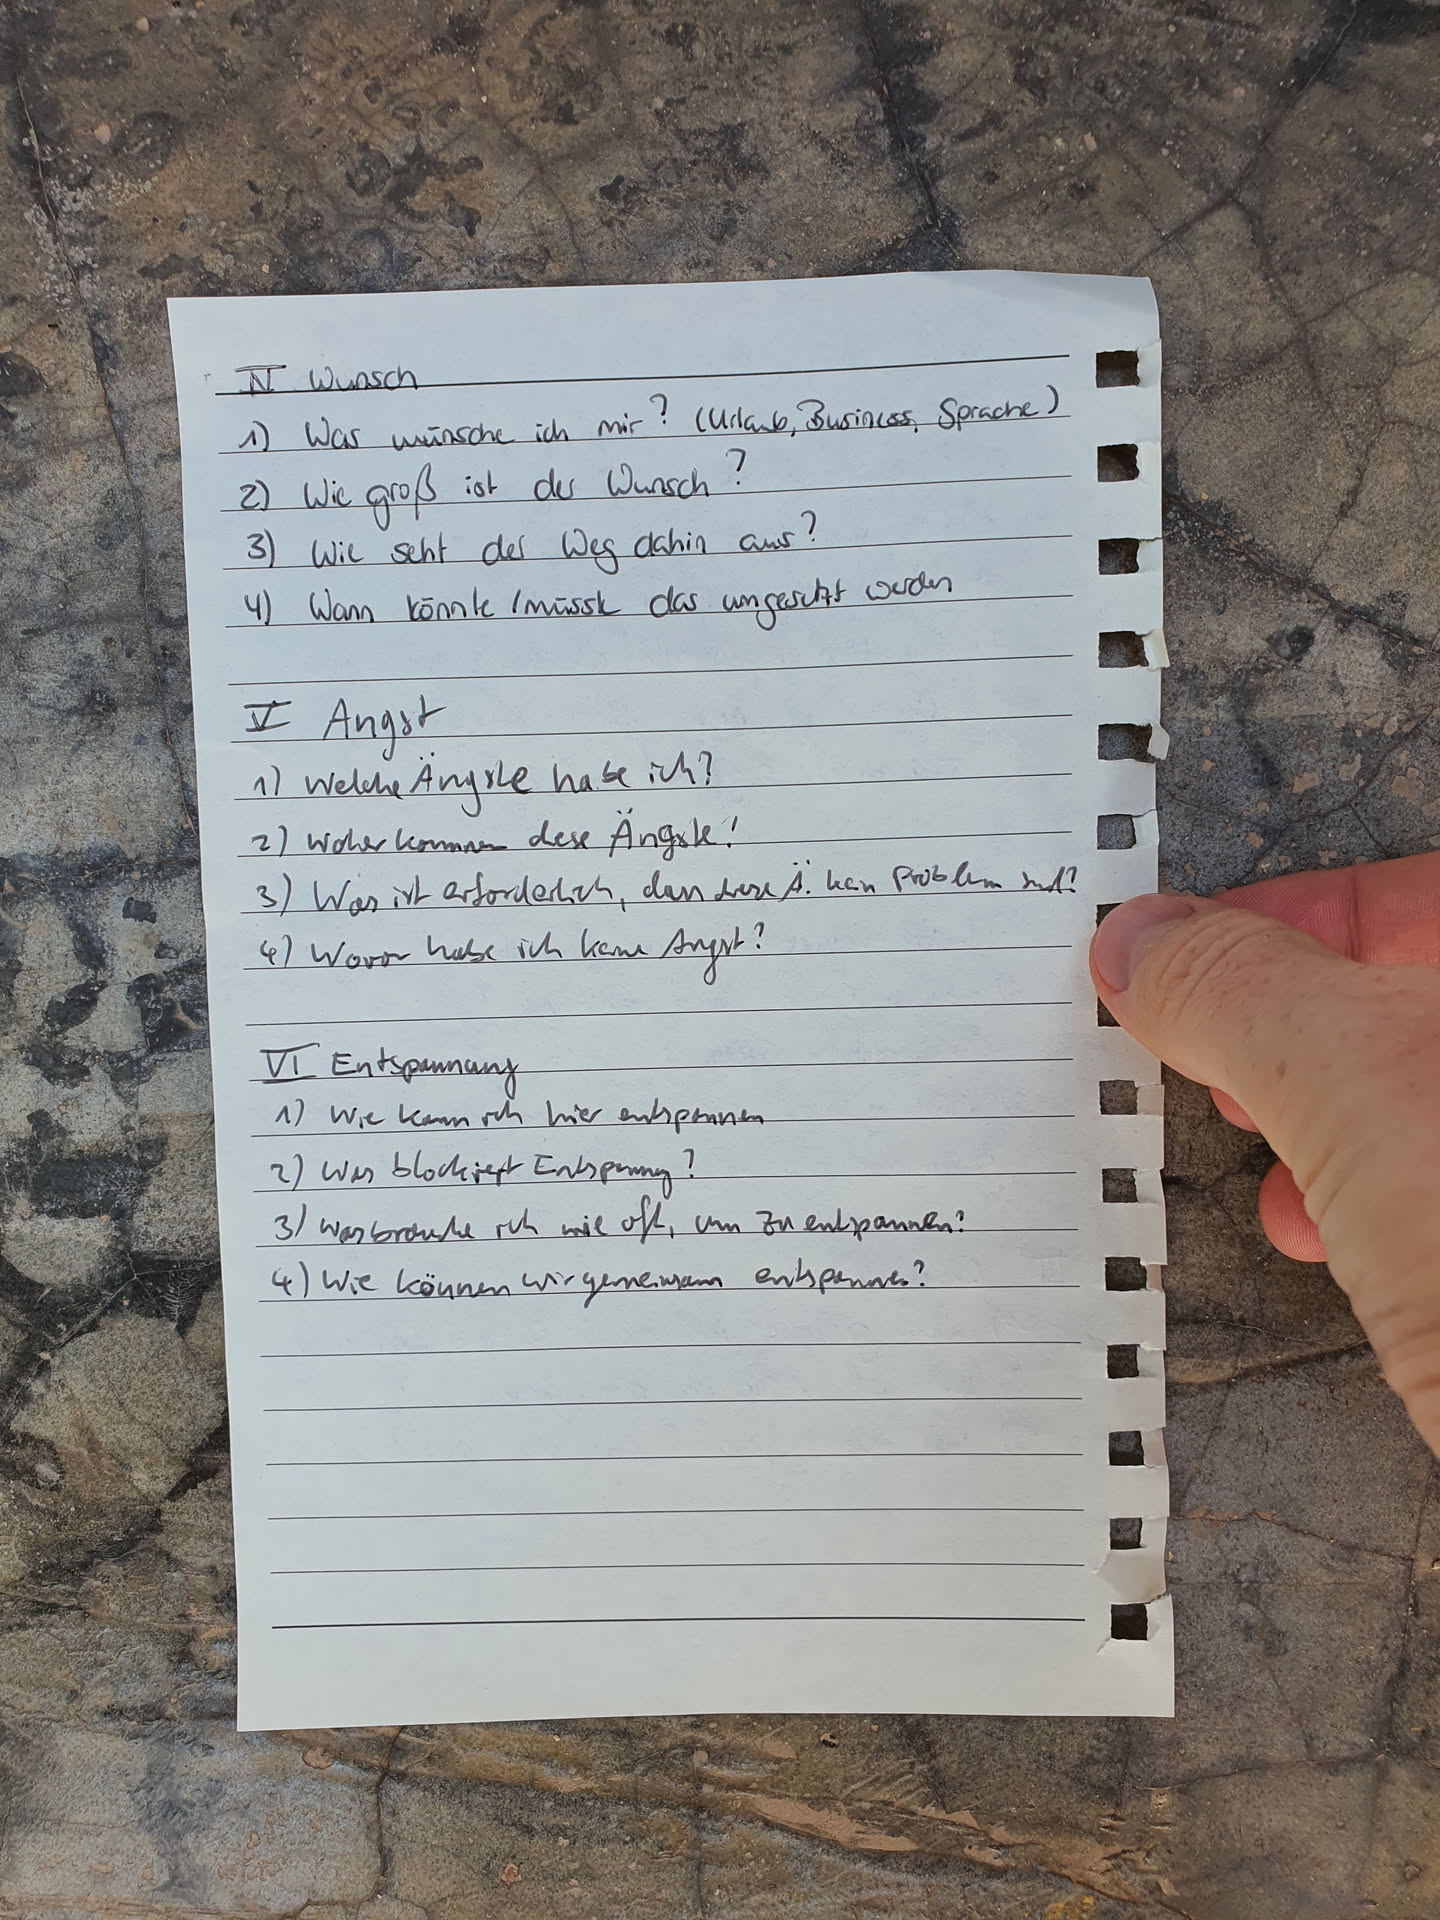 IV Wunsch
1) Was wünsche ich mir? (Urlaub, Business, Sprache)
2) Wie groß ist der Wunsch?
3) Wie seht der Weg dahin aus?
4) Wann könnte / müsste das umgesetzt werden
V Angst
1) Welche Ängste habe ich?
2) Woher kommen diese Ängste?
3) Was ist erforderlich, dass diese Ä. kein Problem sind?
4) Wovor habe ich keine Angst?
VI Entspannung
1) Wie kann ich hier entspannen
2) Was blockiert Entspannung?
3) Was brauche ich wie oft, um zu entspannen?
4) Wie können wir gemeinsam entspannen?